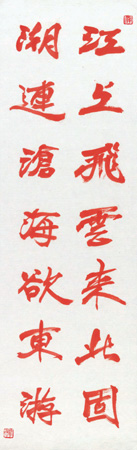 江上飛雲來北固
湖連滄海欲東游